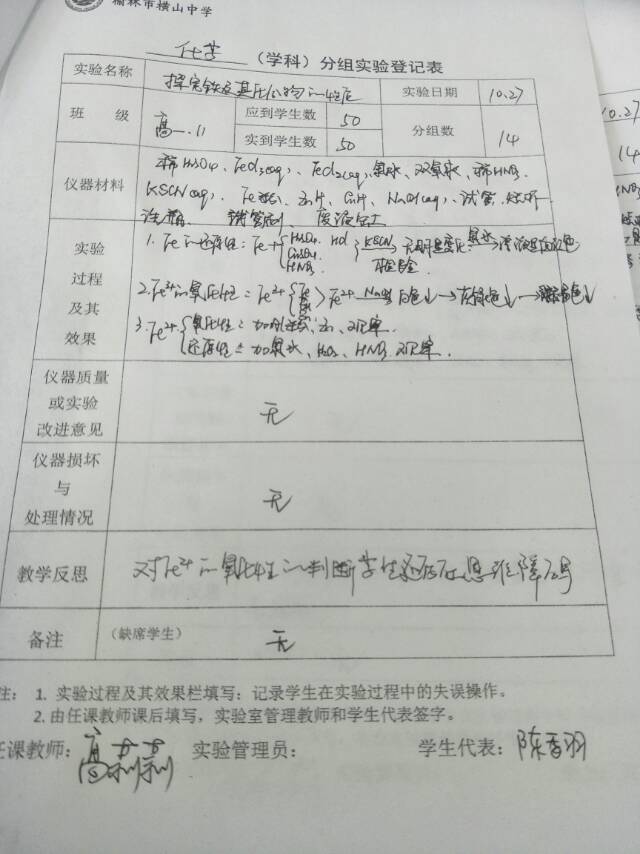 榆林市横山中学
化学 (学科) 分组实验登记表
实验名称 探究铁及其化合物的性质 实验日期 10.27
班 级 高一.11 应到学生数 50 分组数 14
实到学生数 50
仪器材料 稀H₂SO₄、FeCl₃(aq)、FeCl₂(aq)、氯水、双氧水、稀HNO₃、
KSCN(aq)、Fe Zn片、Cu片、NaOH(aq)、试管、
试管刷、废液缸
实验过程及其效果
1. Fe的还原性: Fe+ { H₂SO₄、HCl CuSO₄ HNO₃ } KSCN 检验 无明显变化 氯水→
2. Fe³⁺的氧化性: Fe³⁺ { Fe²⁺ NaOH 白色↓→灰绿色↓→ ↓
3. Fe²⁺ { 氧化性: 加 、Zn、观察.
还原性: 加氯水、H₂O₂、HNO₃ 观察.
仪器质量或实验改进意见 无
仪器损坏与处理情况 无
教学反思 对Fe²⁺的氧化性的判断学生还存在思维障碍
备注 (缺席学生) 无
注: 1. 实验过程及其效果栏填写:记录学生在实验过程中的失误操作。
2.由任课教师课后填写,实验室管理教师和学生代表签字。
任课教师: 高 实验管理员: 学生代表: 陈香羽